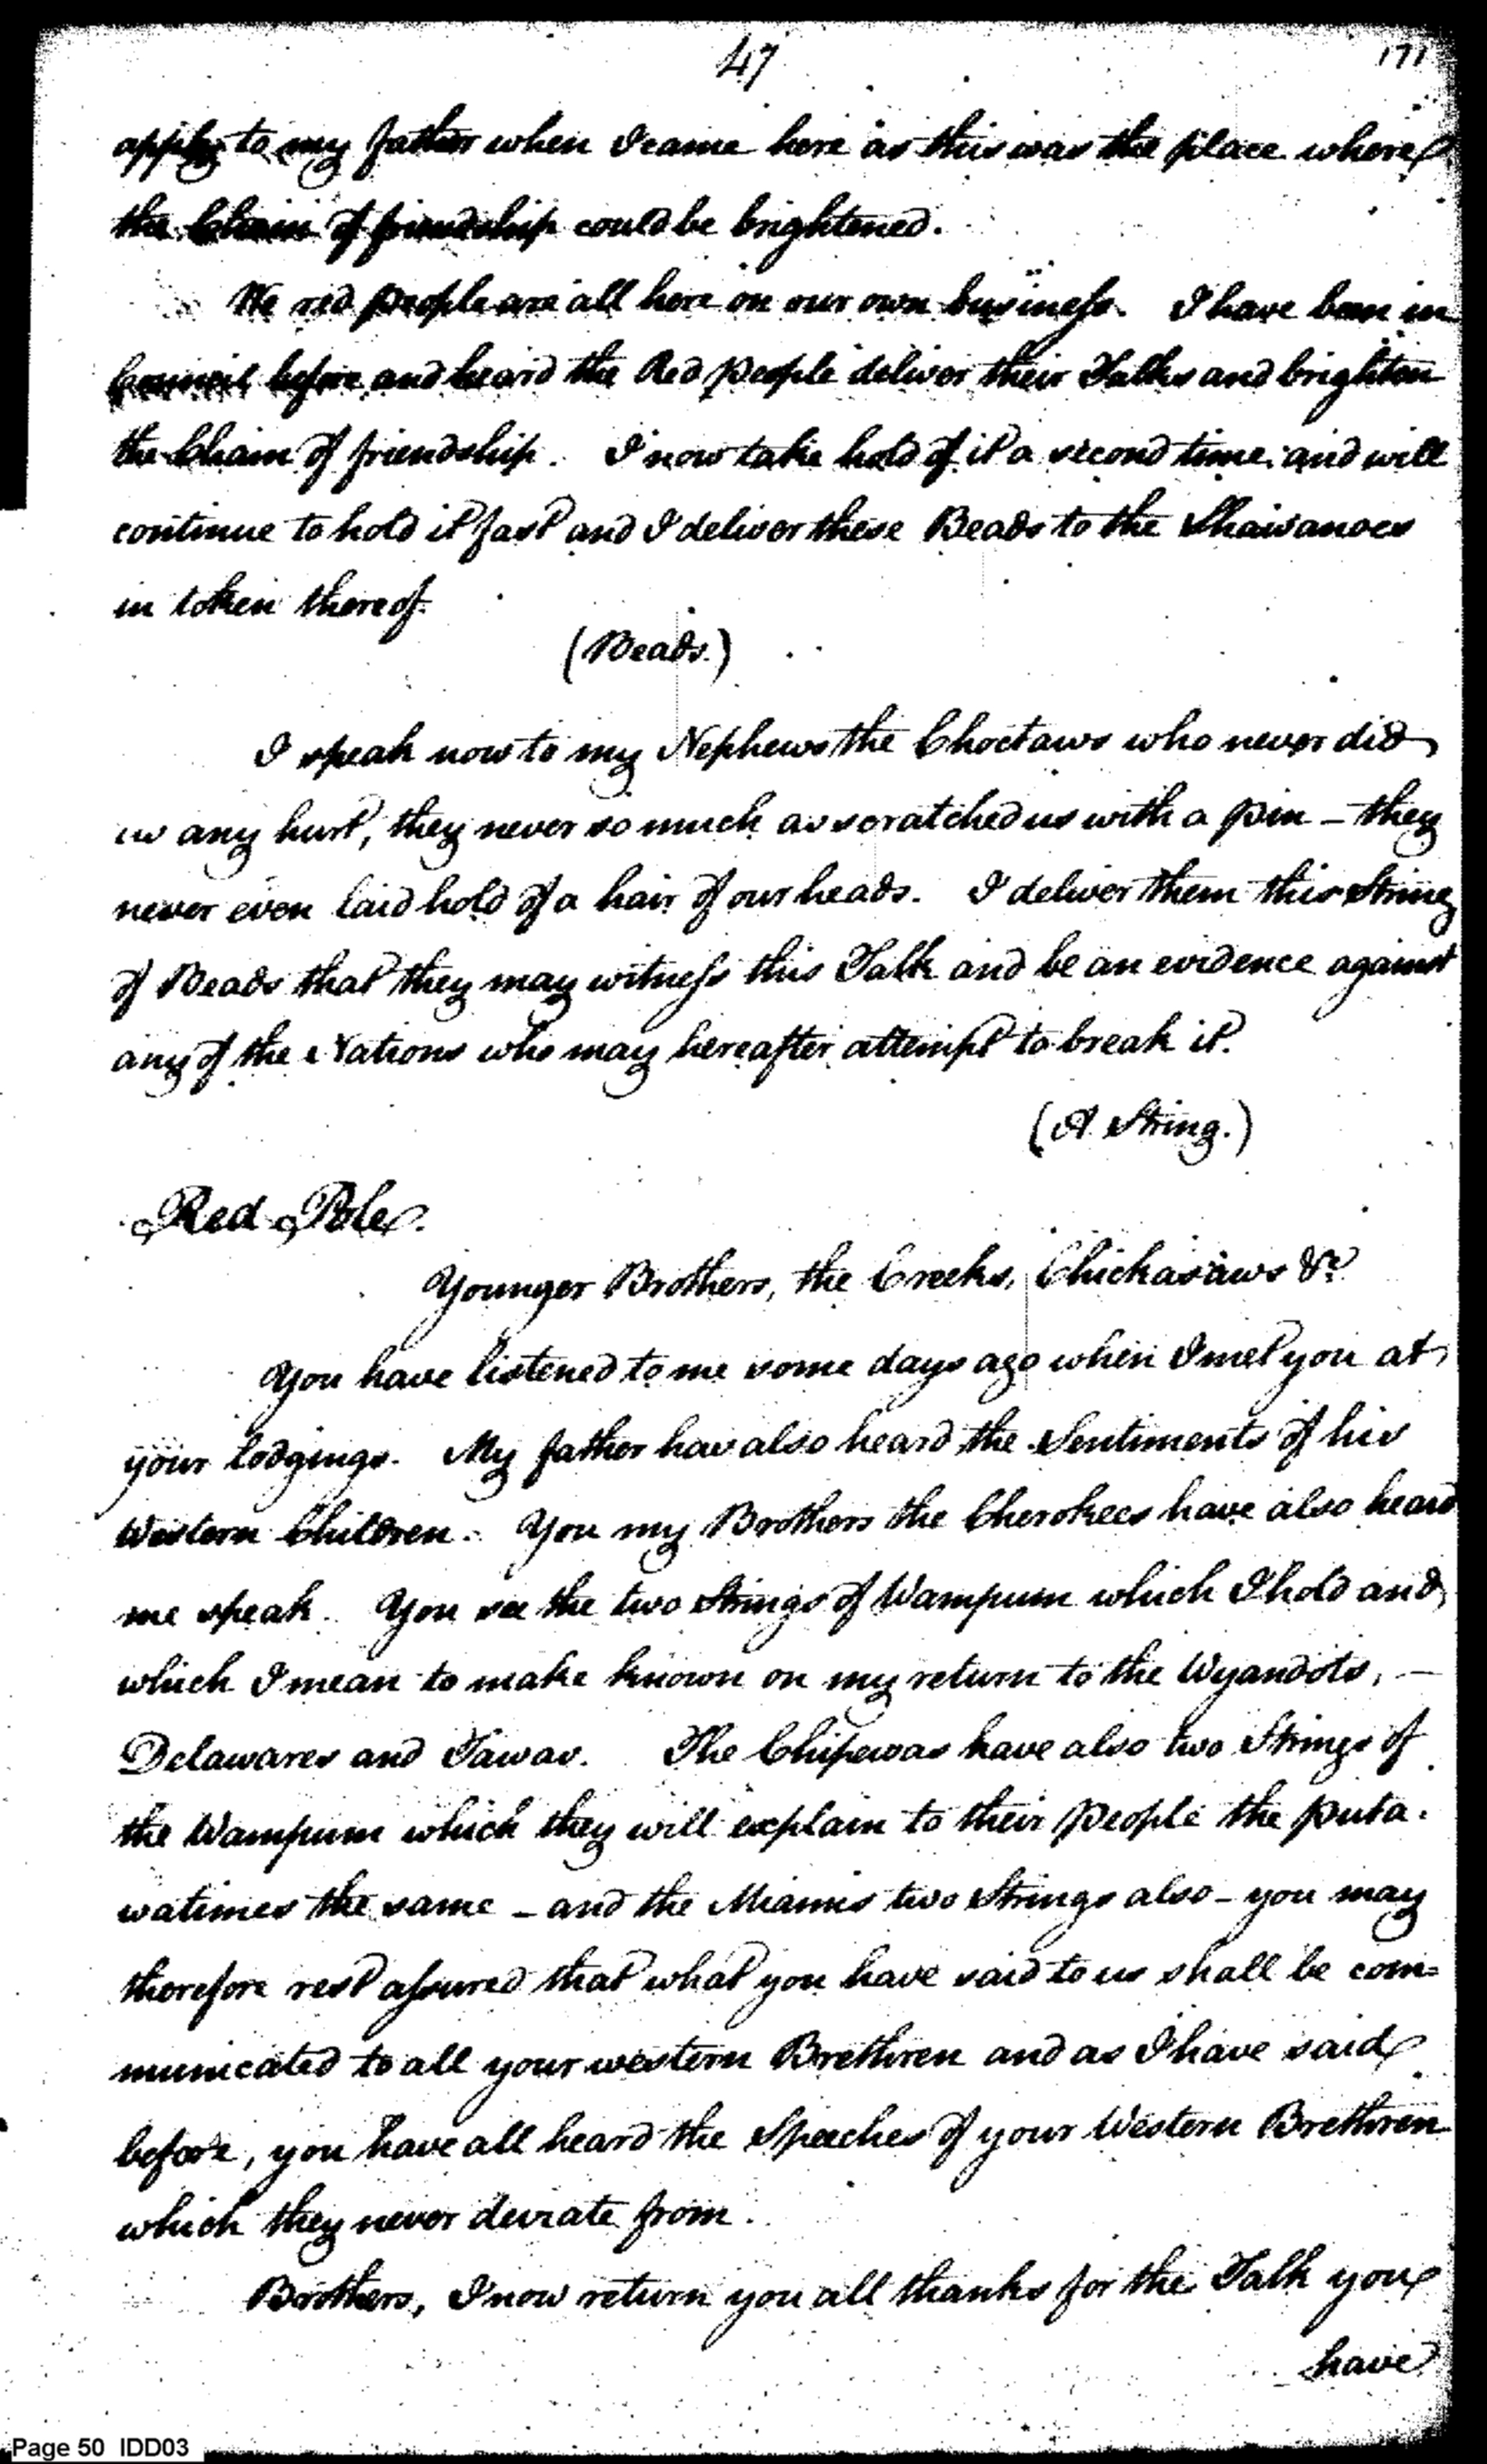 47
171
apply to my father when I came here as this was the place where
the Chain of friendship could be brightened.
We red people are all here on our own business. I have been in
Council before and heard the Red people deliver their Talks and brighten
the Chain of friendship. I now take hold of it a second time and will
continue to hold it fast and I deliver these Beads to the Shawanoes
in token thereof.
(Beads.)
I speak now to my Nephews the Choctaws who never did
us any hurt, they never so much as scratched us with a pin - they
never even laid hold of a hair of our heads. I deliver them this String
of Beads that they may witness this Talk and be an evidence against
any of the Nations who may hereafter attempt to break it.
(A String.)
Red Pole.
Younger Brothers, the Creeks, Chickasaws &c.
You have listened to me some days ago when I met you at
your lodgings. My father has also heard the Sentiments of his
Western Children. You my Brothers the Cherokees have also heard
me speak. You see the two Strings of Wampum which I hold and
which I mean to make known on my return to the Wyandots, —
Delawares and Tawas. The Chipewas have also two Strings of
the Wampum which they will explain to their people the puta-
watimes the same - and the Miamis two Strings also - you may
therefore rest assured that what you have said to us shall be com=
municated to all your western Brethren and as I have said
before, you have all heard the Speeches of your Western Brethren
which they never deviate from.
Brothers, I now return you all thanks for the Talk you
have
Page 50 IDD03